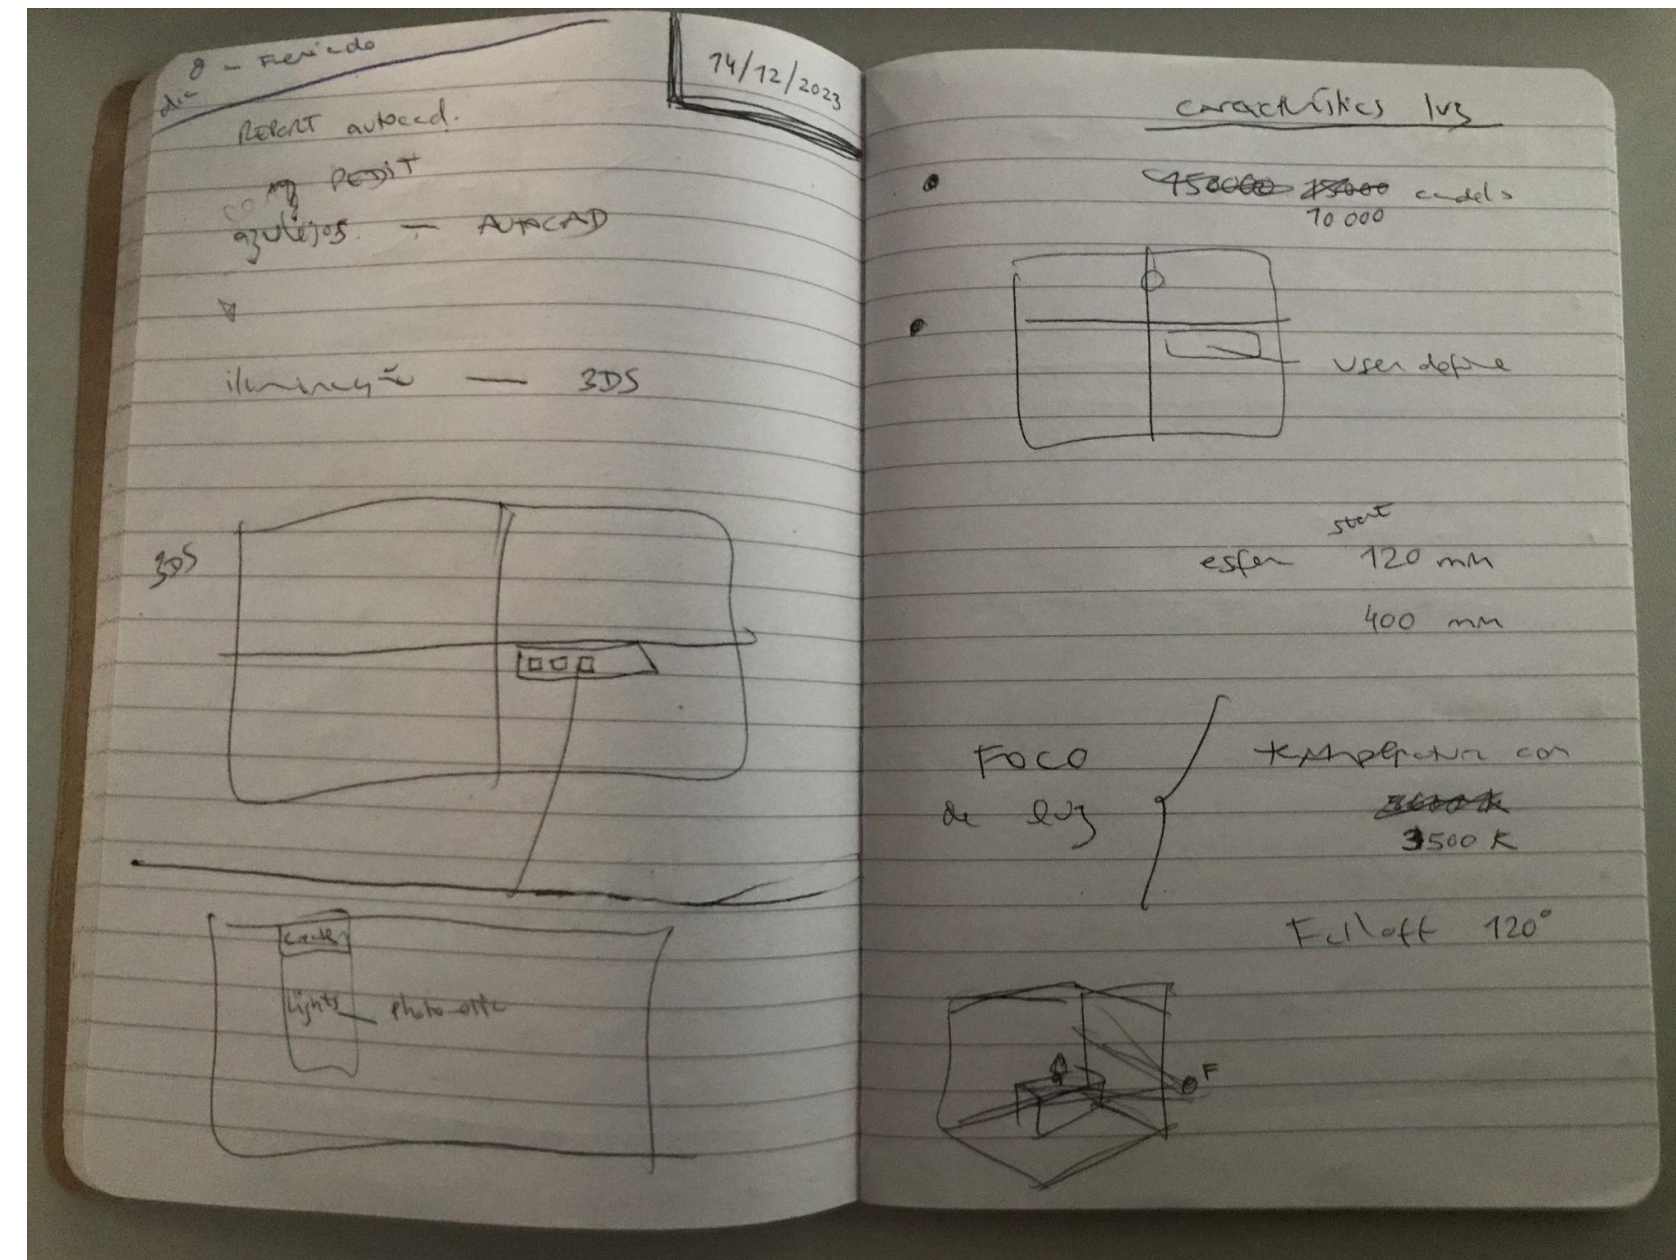 dia 8 - Feriado
14/12/2023
REPORT autocad.
PEDIT
azulejos - AUTOCAD
iluminação - 3DS
3DS
Lights - Photometric
características luz
150000 15000 candels
10 000
User define
start
esfera 120 mm
400 mm
Foco
de luz
temperatura con
3600 K
3500 K
Falloff 120°
F